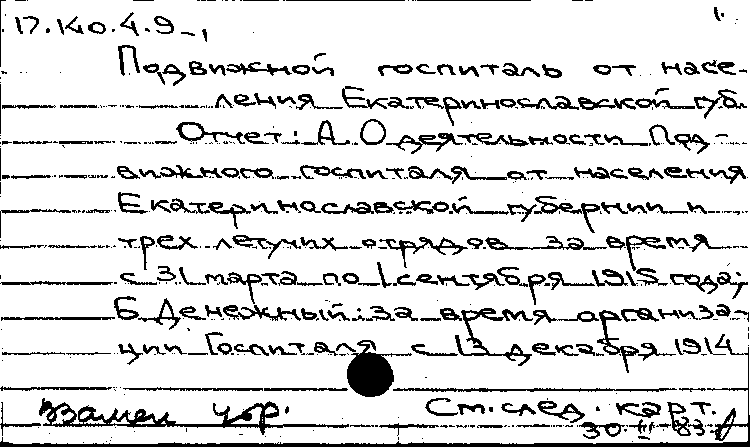 1.
17.140.4.9-1
Подвижной госпиталь от насе-
ления Екатеринославской губ.
Отчет: А. О деятельности Под-
вижного госпиталя от населения
Екатеринославской губернии и
трех летучих отрядов за время
с 31 марта по 1 сентября 1915 года;
Б. Денежный: за время организа-
ции Госпиталя с 13 декабря 1914
См. след. карт.
взамен
30.III-83